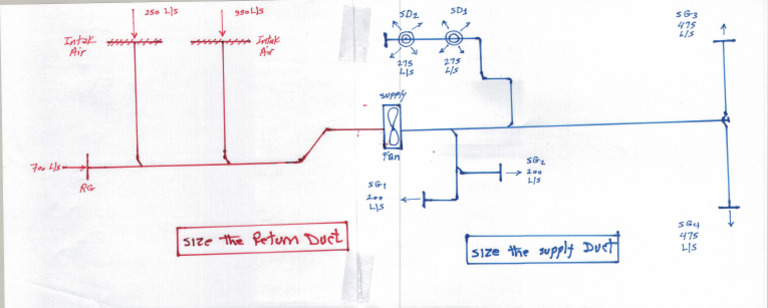 250 L/s
950 L/s
Intak
Air
Intak
Air
SD2
SD1
275
L/S
275
L/S
SG3
475
L/S
supply
Fan
700 L/s
RG
SG1
200
L/S
SG2
200
L/S
SG4
475
L/S
Size the Return Duct
Size the supply Duct